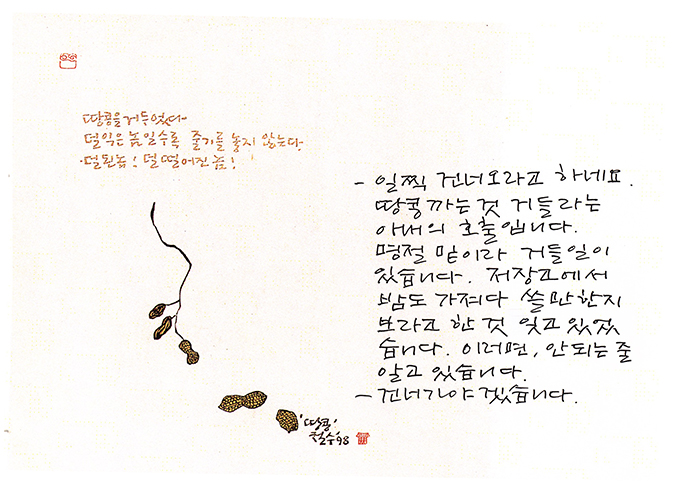 땅콩을 거두었다
덜 익은 놈일수록 줄기를 놓지 않는다.
·덜된놈! 덜 떨어진 놈!
- 일찍 건너오라고 하네요.
땅콩 까는 것 거들라는
아내의 호출입니다.
명절 밑이라 거들일이
있습니다. 저장고에서
밤도 가져다 쓸만한지
보라고 한 것 잊고 있었
습니다. 이러면, 안되는 줄
알고 있습니다.
- 건너가야겠습니다.
'땅콩'
철수 '98